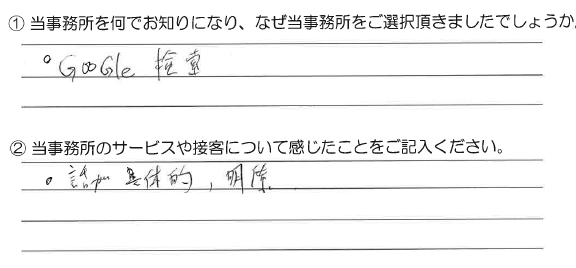 ① 当事務所を何でお知りになり、なぜ当事務所をご選択頂きましたでしょうか
。Google 検索
② 当事務所のサービスや接客について感じたことをご記入ください。
。話が具体的，明瞭